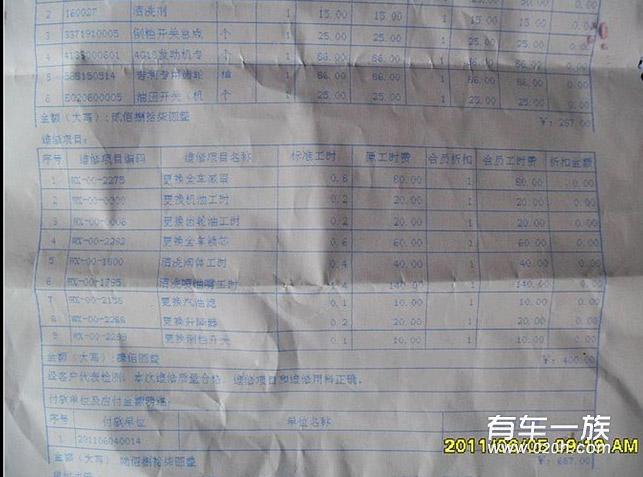 2 160027 清洗剂 1 15.00 15.00 0.00
3 3371910005 倒档开关总成 个 1 25.00 25.00 0.00
4 4G15发动机专 个 1 86.00 86.00 0.00
5 齿轮 1 86.00 86.00 0.00
6 5020600005 油压开关（机 个 1 25.00 25.00 0.00
金额（大写）:贰佰捌拾柒圆整 ￥: 287.00
维修项目:
序号 维修项目编码 维修项目名称 标准工时 工时费 会员折扣 会员工时费 折扣金额
1 WX-00-2275 更换全车 0.8 80.00 1 80.00 0.00
2 更换机油工时 0.2 20.00 1 20.00 0.00
3 更换齿轮油工时 0.2 20.00 1 20.00 0.00
4 更换全车滤芯 0.6 60.00 1 60.00 0.00
5 WX-00-1800 清洗阀体工时 0.4 40.00 1 40.00 0.00
6 WX-00-1795 清洗喷油嘴工时 1.4 140.00 1 140.00 0.00
7 WX-00-2158 更换汽油滤 0.1 10.00 1 10.00 0.00
8 更换升降器 0.2 20.00 1 20.00 0.00
9 更换倒档开关 0.1 10.00 1 10.00 0.00
金额（大写）:肆佰圆整 ￥: 400.00
经客户代表检测:本次维修质量合格，维修项目和维修用料正确。
付款单位及应付金额明细:
序号 付款单位 单位名称
1 201106040014
金额（大写） 陆佰捌拾柒圆整 ￥: 687.00
有车一族
2011/06/05 09:19 AM